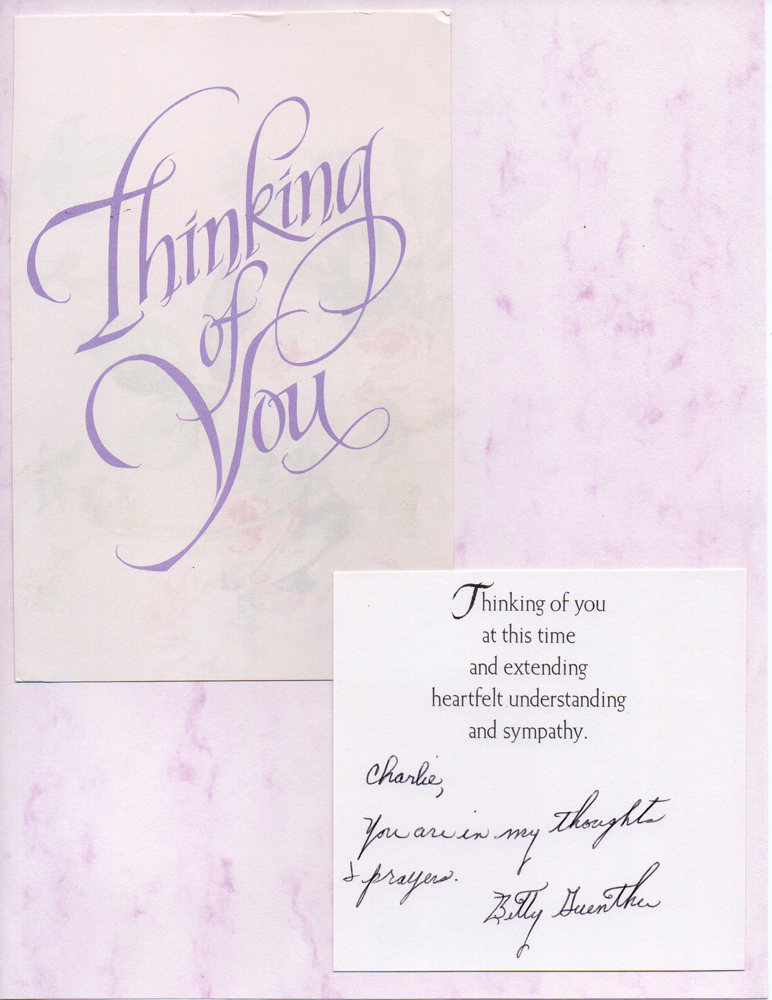 Thinking
of
You
Thinking of you
at this time
and extending
heartfelt understanding
and sympathy.
Charlie,
You are in my thoughts
& prayers.
Betty Guenther